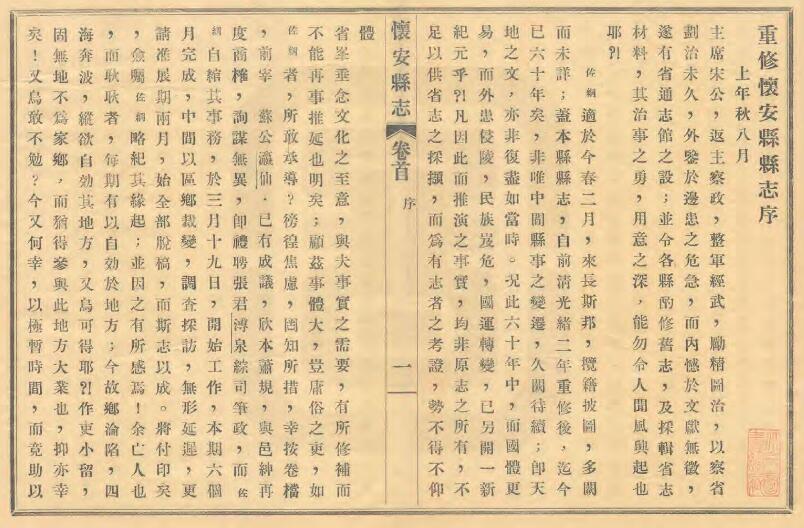 重修懷安縣縣志序
上年秋八月
主席宋公，返主察政，整軍經武，勵精圖治，以察省
劃治未久，外鑒於邊患之危急，而內憾於文獻無徵，
遂有省通志館之設；並令各縣酌修舊志，及採輯省志
材料，其治事之勇，用意之深，能勿令人聞風興起也
耶？！
佐綱適於今春二月，來長斯邦，攬籍披圖，多闕
而未詳；蓋本縣縣志，自前清光緒二年重修後，迄今
已六十年矣，非唯中間縣事之變遷，久闕待續；卽天
地之文，亦非復盡如當時。況此六十年中，而國體更
易，而外患侵陵，民族岌危，國運轉變，已另開一新
紀元乎？！凡因此而推演之事實，均非原志之所有，不
足以供省志之採擷，而爲有志者之考證，勢不得不仰
懷安縣志 卷首 序 一
體
省峯垂念文化之至意，與夫事實之需要，有所修補而
不能再事推延也明矣；顧茲事體大，豈庸俗之吏，如
佐綱者，所敢承導？徬徨焦慮，罔知所措，幸按卷檔
，前宰 蘇公瀛仙，已有成議，欣本蕭規，與邑紳再
度商榷，詢謀無異，卽禮聘張君溥泉綜司筆政，而佐
綱自綰其事務，於三月十九日，開始工作，本期六個
月完成，中間以區鄉裁變，調查採訪，無形延遲，更
請准展期兩月，始全部脫稿，而斯志以成。將付印矣
，僉囑佐綱略紀其緣起；並因之有所感焉！余亡人也
，而耿耿者，每期有以自効於地方；今故鄉淪陷，四
海奔波，縱欲自効其地方，又烏可得耶？！作吏小留，
固無地不爲家鄉，而猶得參與此地方大業也，抑亦幸
矣！又烏敢不勉？今又何幸，以極暫時間，而竟助以